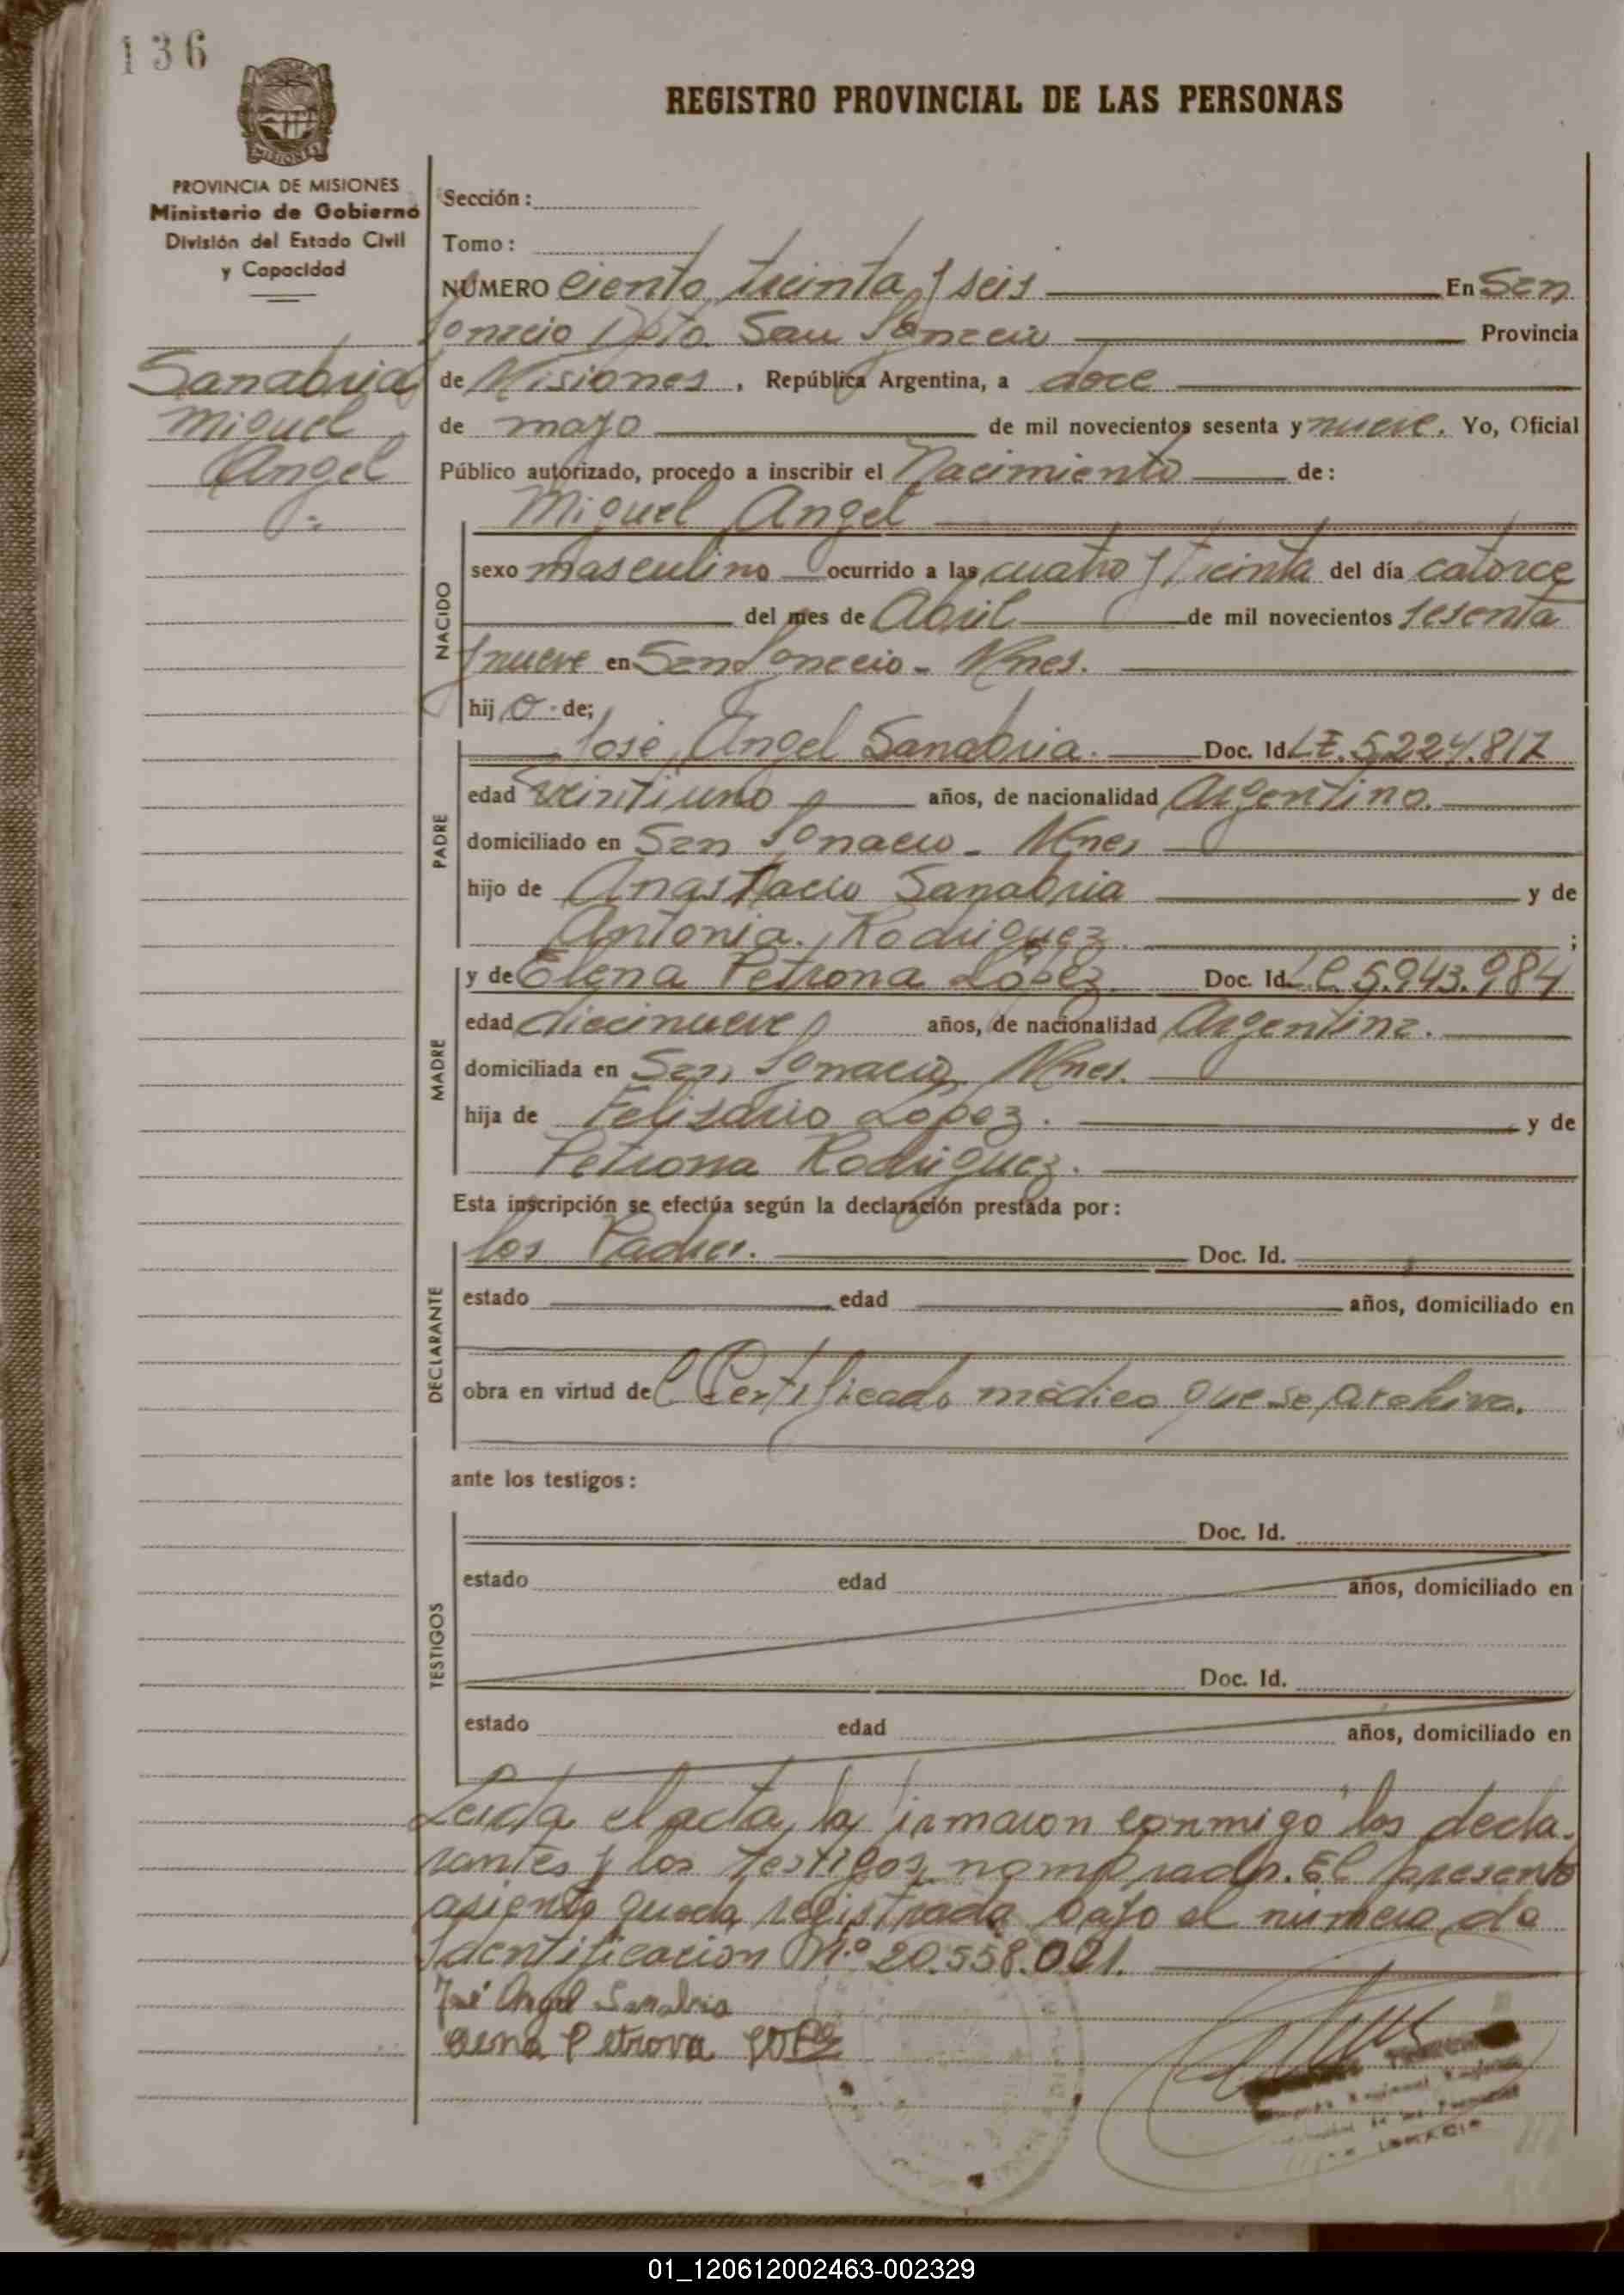 136
REGISTRO PROVINCIAL DE LAS PERSONAS
MISIONES
PROVINCIA DE MISIONES
Ministerio de Gobierno
División del Estado Civil
y Capacidad
Sanabria
Miguel
Angel
Sección:
Tomo:
NÚMERO Ciento treinta y seis En San
Ignacio Dpto. San Ignacio Provincia
de Misiones, República Argentina, a doce
de mayo de mil novecientos sesenta y nueve. Yo, Oficial
Público autorizado, procedo a inscribir el Nacimiento de:
NACIDO
Miguel Angel
sexo masculino ocurrido a las cuatro y treinta del día catorce
del mes de Abril de mil novecientos sesenta
y nueve en San Ignacio - Mnes.
hijo de;
PADRE
José Angel Sanabria. Doc. Id. L.E. 5.224.817
edad veintiuno años, de nacionalidad Argentino.
domiciliado en San Ignacio - Mnes
hijo de Anastacio Sanabria y de
Antonia Rodriguez ;
MADRE
y de Elena Petrona López Doc. Id. L.C. 5.943.984
edad diecinueve años, de nacionalidad Argentina.
domiciliada en San Ignacio Mnes.
hija de Felisario López. y de
Petrona Rodriguez.
Esta inscripción se efectúa según la declaración prestada por:
DECLARANTE
los Padres. Doc. Id.
estado edad años, domiciliado en
obra en virtud del Certificado médico que se archiva.
ante los testigos:
TESTIGOS
Doc. Id.
estado edad años, domiciliado en
Doc. Id.
estado edad años, domiciliado en
Leida el acta, la firmaron conmigo los decla-
rantes y los testigos nombrado. El presente
asiento queda registrada bajo el número de
Identificacion N.º 20.558.021.
José Angel Sanabria
elena Petrona LOPez
IGNACIO
01_120612002463-002329